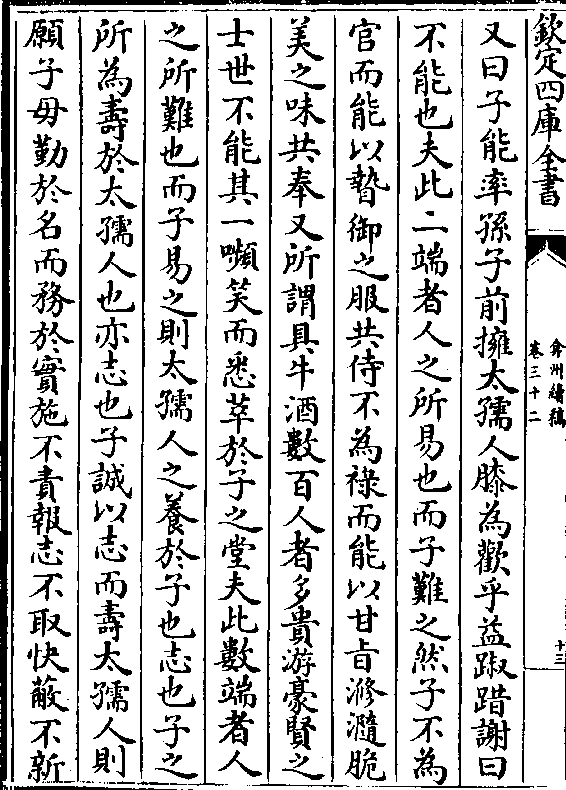 欽定四庫全書
弇州續稿
卷三十二
十三
又曰子能率孫子前擁太孺人膝為歡乎益踧踖謝曰
不能也夫此二端者人之所易也而子難之然子不為
官而能以䞇御之服共侍不為祿而能以甘旨滫瀡脆
美之味共奉又所謂具牛酒數百人者多貴游豪賢之
士世不能其一嚬笑而悉萃於子之堂夫此數端者人
之所難也而子易之則太孺人之養於子也志也子之
所為壽於太孺人也亦志也子誠以志而壽太孺人則
願子毋勤於名而務於實施不責報志不取快蔽不新